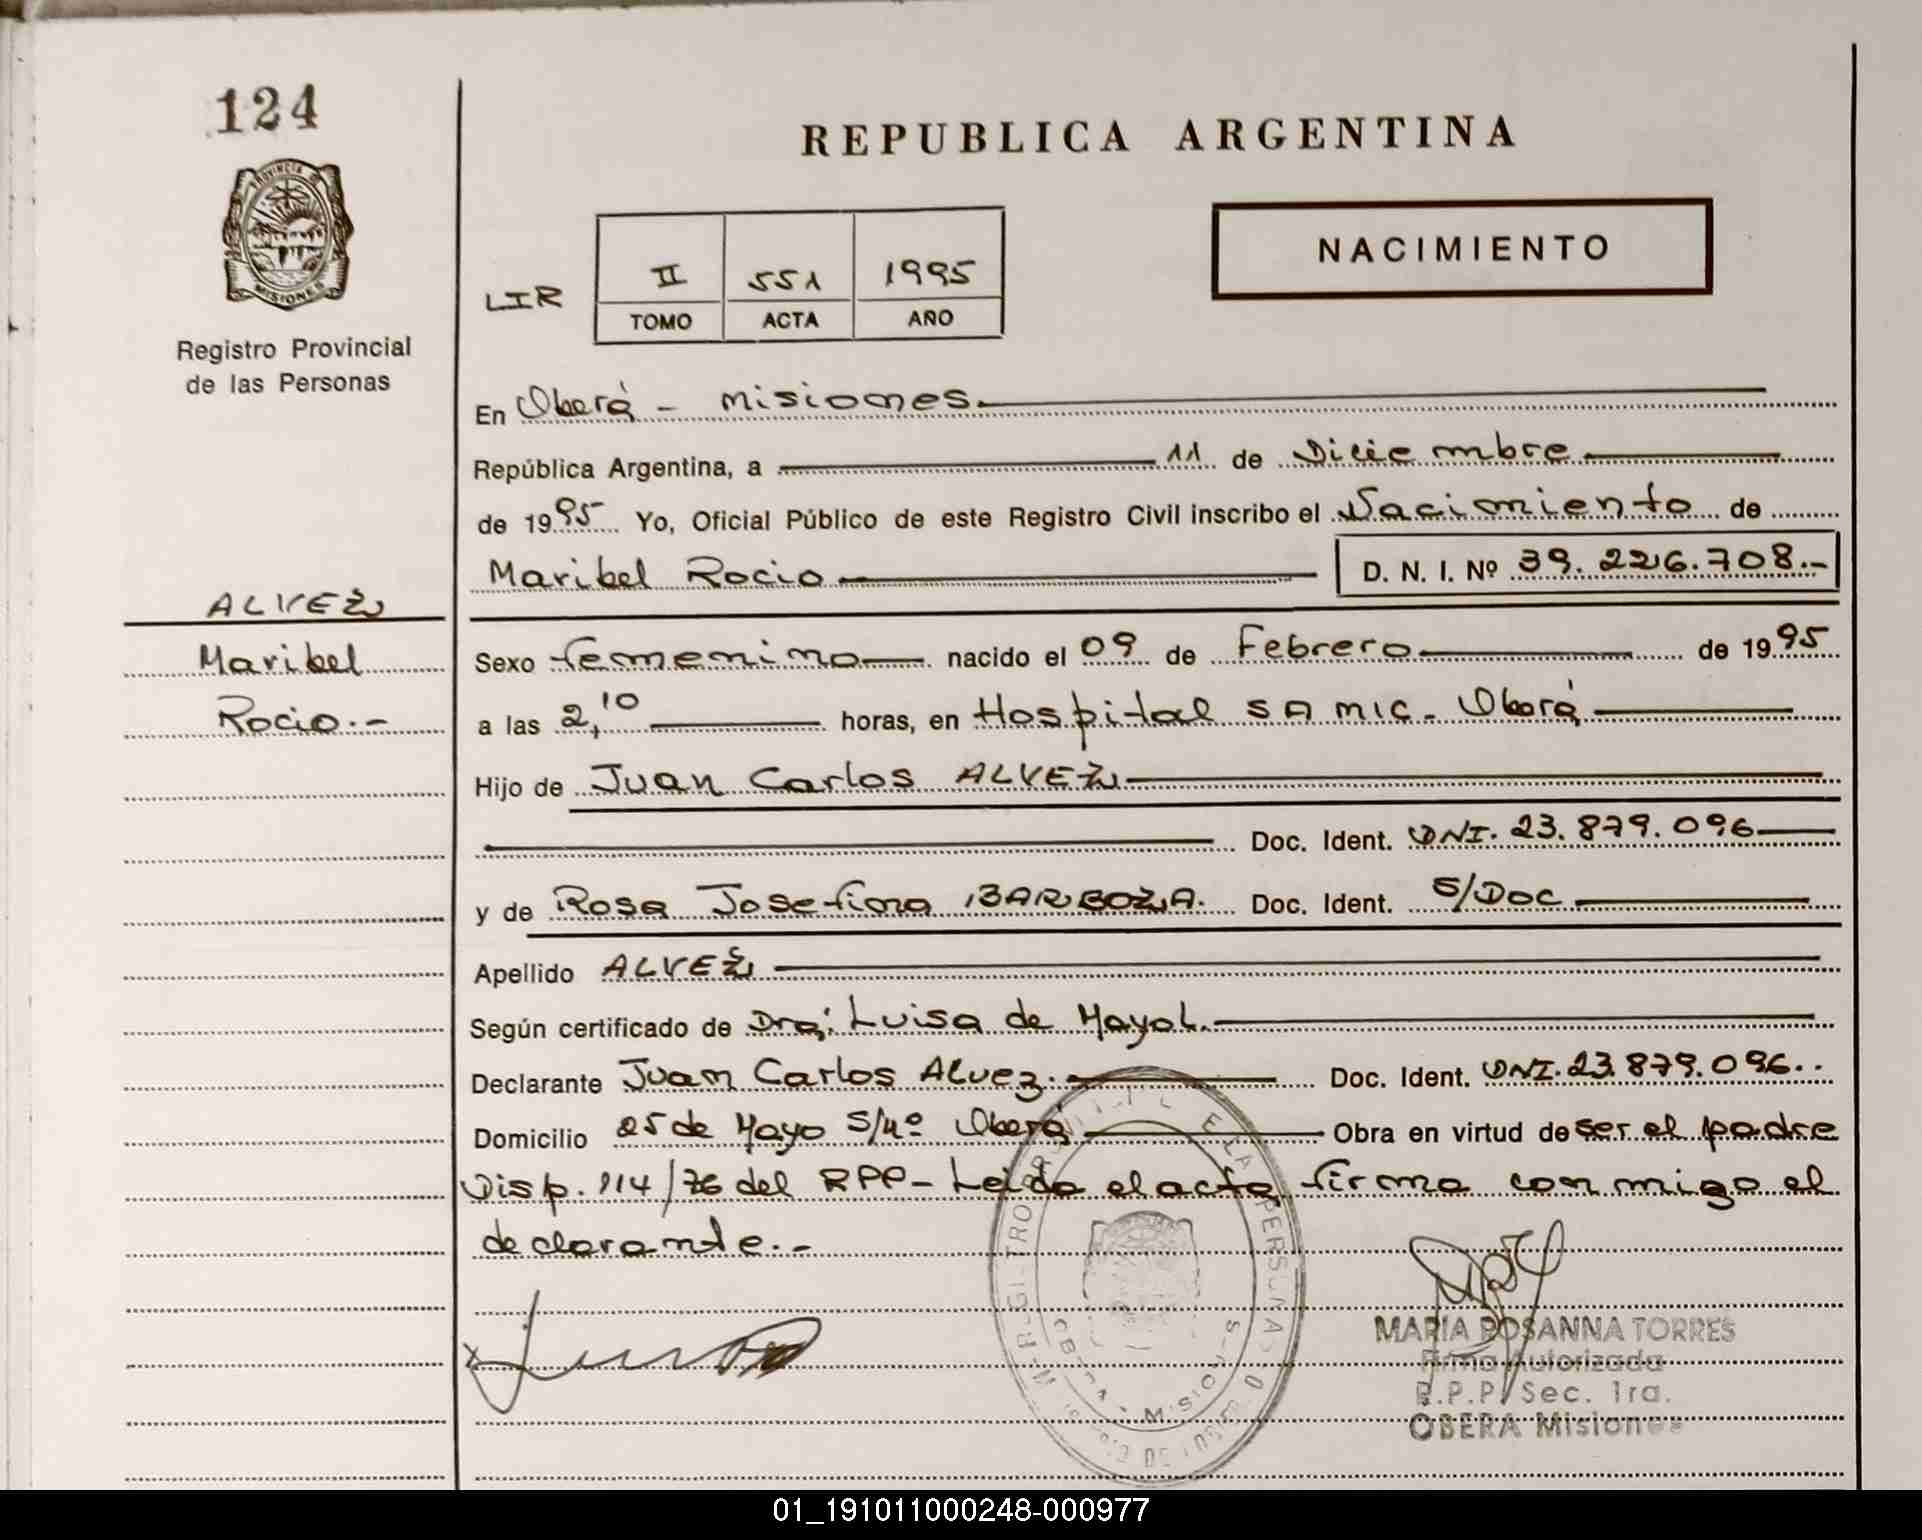 124
PROVINCIA DE
MISIONES
Registro Provincial
de las Personas
ALVEZ
Maribel
Rocio.-
REPUBLICA ARGENTINA
NACIMIENTO
LIR
II 551 1995
TOMO ACTA AÑO
En Oberá - Misiones.
República Argentina, a 11 de Diciembre
de 1995 Yo, Oficial Público de este Registro Civil inscribo el Nacimiento de
Maribel Rocio D. N. I. Nº 39.226.708.-
Sexo femenino nacido el 09 de Febrero de 1995
a las 2,10 horas, en Hospital SAMIC. Oberá
Hijo de Juan Carlos ALVEZ
Doc. Ident. DNI. 23.879.096
y de Rosa Josefina BARBOZA. Doc. Ident. S/DOC
Apellido ALVEZ
Según certificado de Dra: Luisa de Mayol.
Declarante Juan Carlos Alvez. Doc. Ident. DNI.23.879.096..
Domicilio 25 de Mayo S/nº Oberá Obra en virtud de ser el padre
Disp. 114/76 del RPP - Leida el acta firma conmigo el
declarante.-
MARIA ROSANNA TORRES
Firma Autorizada
R.P.P. Sec. 1ra.
OBERA Misiones
01_191011000248-000977